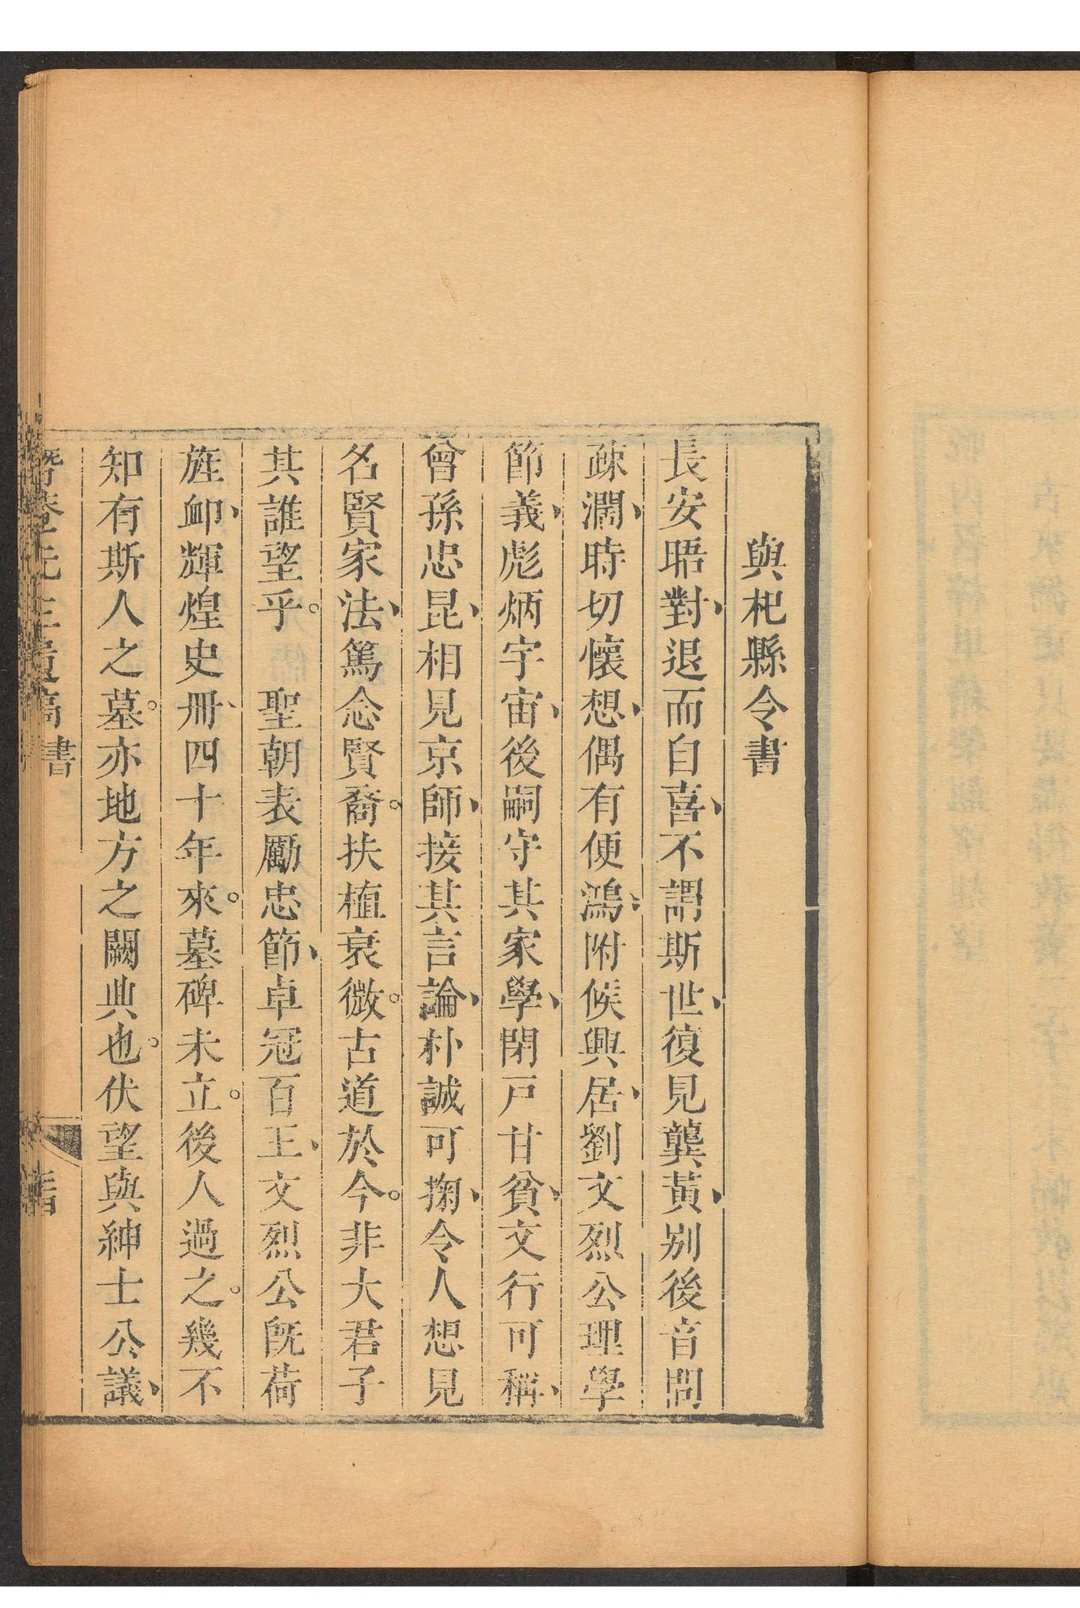 與杞縣令書
長安晤對、退而自喜、不謂斯世、復見龔黃、別後音問
疎濶、時切懷想、偶有便鴻、附候興居、劉文烈公理學
節義、彪炳宇宙、後嗣守其家學、閉戶甘貧、文行可稱、
曾孫忠昆、相見京師、接其言論、朴誠可掬、令人想見
名賢家法、篤念賢裔。扶植衰微。古道於今。非大君子
其誰望乎。 聖朝表勵忠節、卓冠百王、文烈公既荷
旌卹、輝煌史冊、四十年來。墓碑未立。後人過之。幾不
知有斯人之墓。亦地方之闕典也。伏望與紳士公議、
潛菴先生遺稿 書